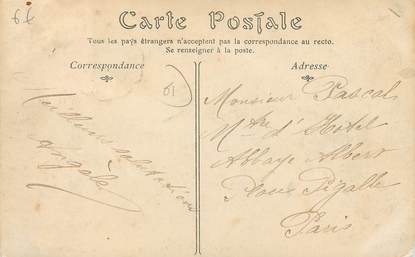 6€
Carte Postale
Tous les pays étrangers n'acceptent pas la correspondance au recto.
Se renseigner à la poste.
Correspondance
Adresse
01
Meilleures salutations
Angèle
Monsieur Pascal
Mtre d'Hôtel
Abbaye Albert
Place Pigalle
Paris